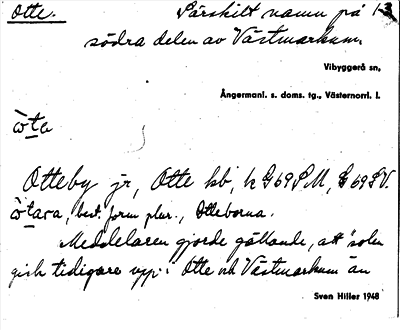 Otte. Särskilt namn på 1-3
södra delen av Västmarkum.
Vibyggerå sn,
Ångermanl. s. doms. tg., Västernorrl. l.
Otteby jr, Otte hb, h G 69 S M, G 69 S V.
best. form plur., Otteborna.
Meddelaren gjorde gällande, att "solen
gick tidigare upp i Otte och Västmarkum än
Sven Hiller 1948